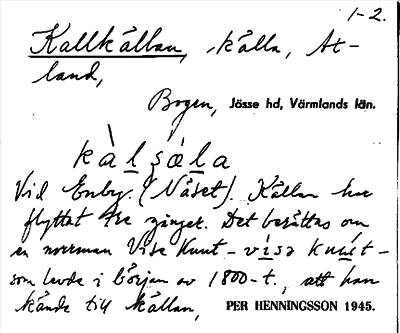 1-2.
Kallkällan, källa, At-
land,
Bogen, Jösse hd, Värmlands län.
kàlṣæ̀la
Vid Enby. (Näset). Källan har
flyttat tre gånger. Det berättas om
en norrman Vise Knut - vísa knút -
som levde i början av 1800-t., att han
kände till källan, PER HENNINGSSON 1945.